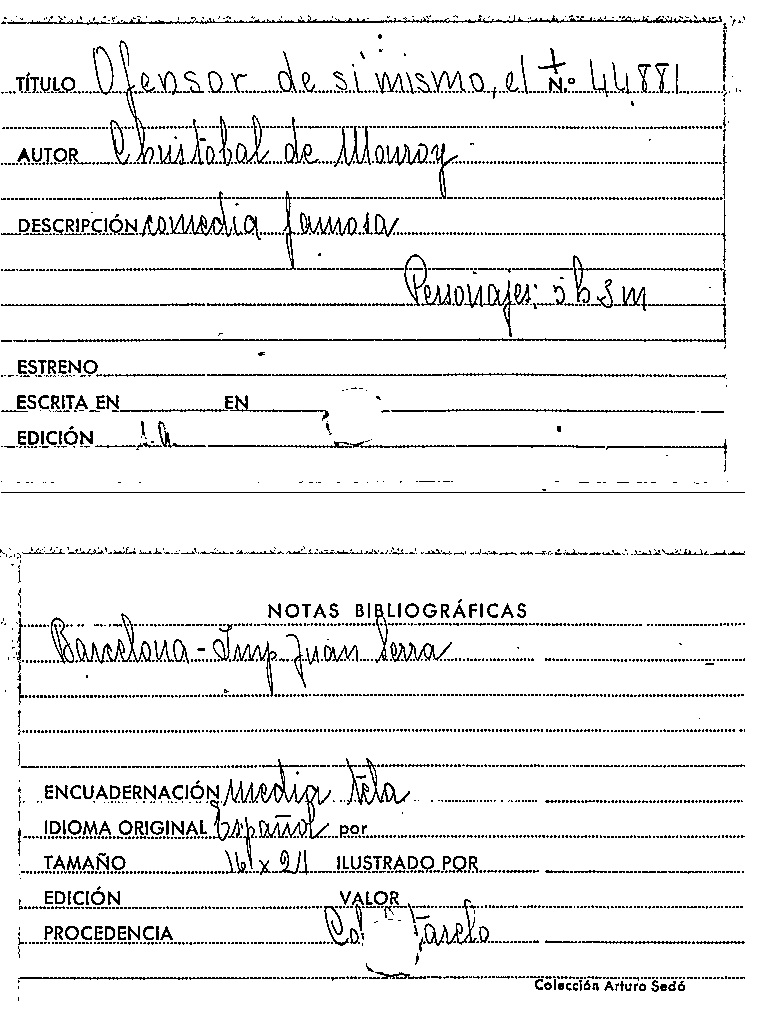 TÍTULO Ofensor de si mismo, el N.º 44881
AUTOR Christobal de Monroy
DESCRIPCIÓN comedia famosa
Personajes: 5 h 3 m
ESTRENO
ESCRITA EN EN
EDICIÓN s.a.
NOTAS BIBLIOGRÁFICAS
Barcelona - Imp Juan Serra
ENCUADERNACIÓN media tela
IDIOMA ORIGINAL Español por
TAMAÑO 16 x 21 ILUSTRADO POR
EDICIÓN VALOR
PROCEDENCIA
Colección Arturo Sedó